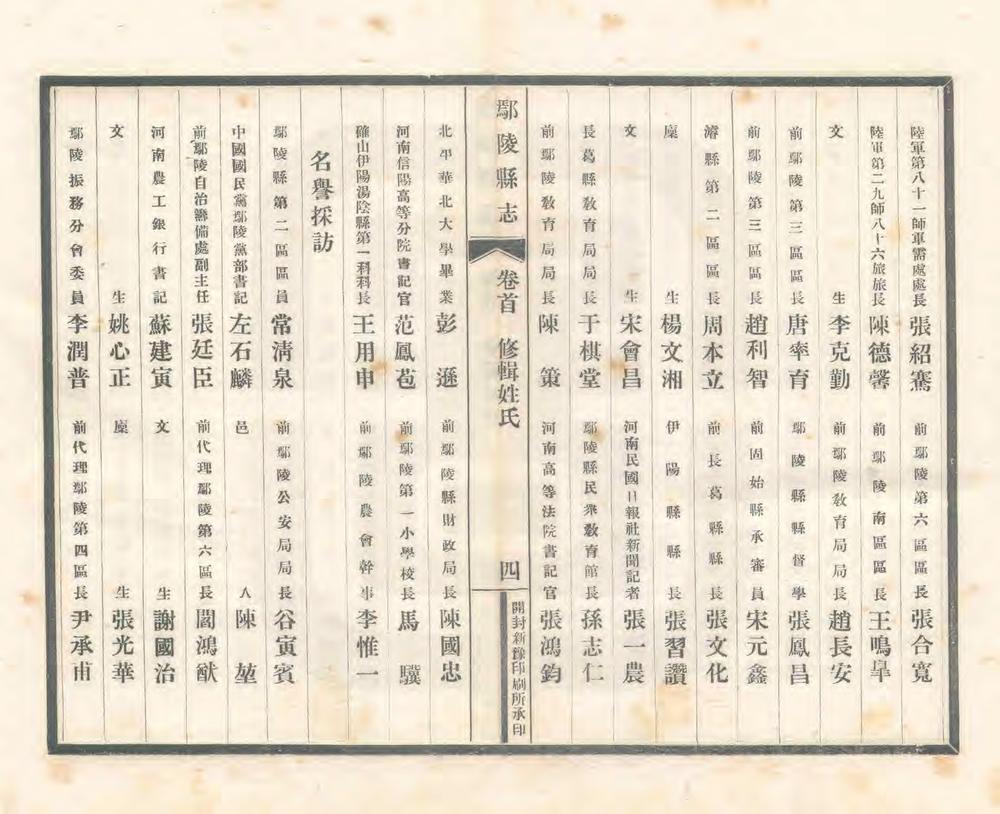 陸軍第八十一師軍需處處長張紹騫 前鄢陵第六區區長張合寬
陸軍第二九師八十六旅旅長陳德馨 前鄢陵南區區長王鳴皐
文生李克勤 前鄢陵敎育局局長趙長安
前鄢陵第三區區長唐率育 鄢陵縣縣督學張鳳昌
前鄢陵第三區區長趙利智 前固始縣承審員宋元鑫
濬縣第二區區長周本立 前長葛縣縣長張文化
廩生楊文湘 伊陽縣縣長張習讚
文生宋會昌 河南民國日報社新聞記者張一農
長葛縣敎育局局長于棋堂 鄢陵縣民衆敎育館長孫志仁
前鄢陵敎育局局長陳策 河南高等法院書記官張鴻鈞
鄢陵縣志 卷首 修輯姓氏 四 開封新豫印刷所承印
北平華北大學畢業彭遜 前鄢陵縣財政局長陳國忠
河南信陽高等分院書記官范鳳苞 前鄢陵第一小學校長馬驥
確山伊陽湯陰縣第一科科長王用申 前鄢陵農會幹事李惟一
名譽採訪
鄢陵縣第二區區員常淸泉 前鄢陵公安局局長谷寅賓
中國國民黨鄢陵黨部書記左石麟 邑人陳堃
前鄢陵自治籌備處副主任張廷臣 前代理鄢陵第六區長閻鴻猷
河南農工銀行書記蘇建寅 文生謝國治
文生姚心正 廩生張光華
鄢陵振務分會委員李潤普 前代理鄢陵第四區長尹承甫